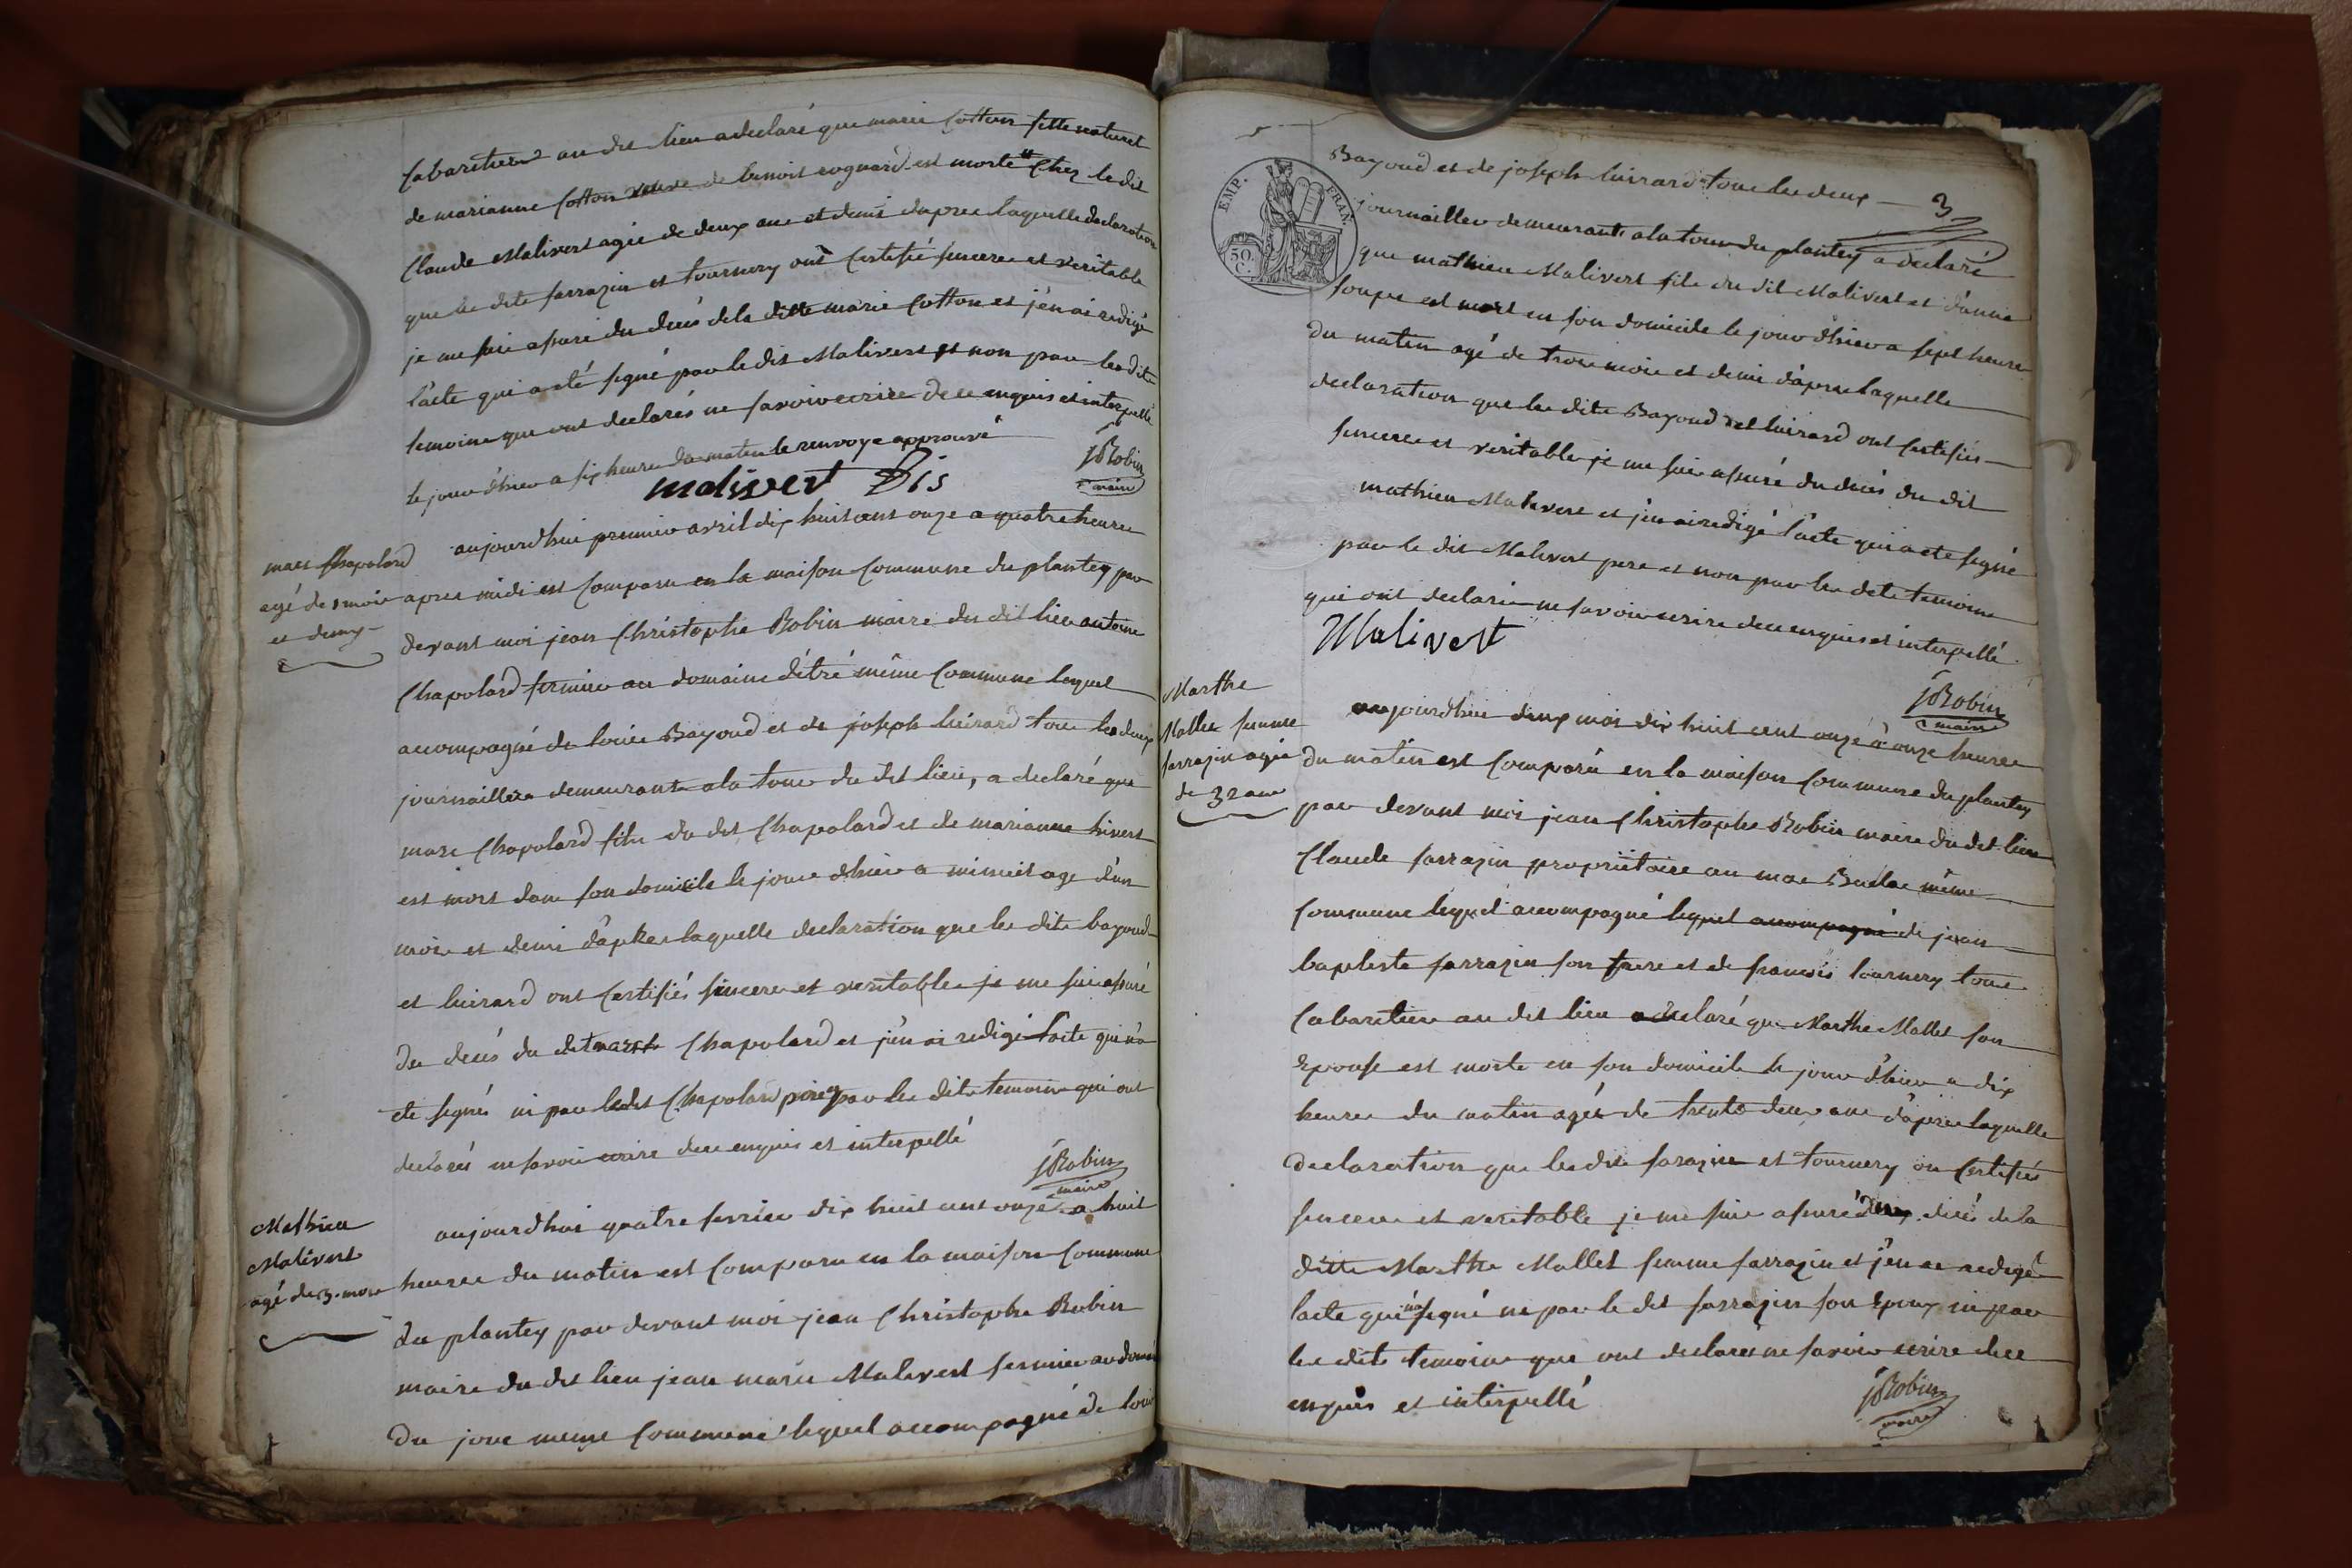 Cabaretiers au dit lieu a declaré que marie Cotton fille naturel
de marianne Cotton veuve de benoit cognard est morte # Chez le dit
Claude Malivert agée de deux ans et demi dapres laquelle declaration
que les dits sarrazin et tournery ont Certifié sincere et veritable
je me suis assuré du decés de la ditte marie Cotton et j'en ai redigé
l'acte qui a eté signé par le dit Malivert et non par les dits
temoins que ont declarés ne savoir ecrire de ce enquis et interpellé
le jour d'hier a six heures du matin le renvoye approuvé
JRobin
maire
malivert Bis
marc Chapolard
agé de 1 mois
et demy
aujourdhui premier avril dix huit cent onze a quatre heures
apres midi est Comparu en la maison Commune du plantey par
devant moi jean Christophe Robin maire du dit lieu antoine
Chapolard fermier au domaine d'étré même Commune lequel
accompagné de louis Bayoud et de joseph luirard tous les deux
journailliers demeurants a la tour du dit lieu, a declaré que
marc Chapolard fils du dit Chapolard et de marianne hivert
est mort dans son domicile le jour d'hier a minuit age d'un
mois et demi d'apres laquelle declaration que les dits bayoud
et luirard ont Certifiés sincere et veritable je me suis assuré
du decés du dit marc Chapolard et j'en ai redigé l'acte qui n'a
eté signés ni par ledit Chapolard pere ny par les dits temoins qui ont
declarés ne savoir ecrire de ce enquis et interpellé
JRobin
maire
Mathieu
Malivert
agé de 3. mois
aujourdhui quatre fevrier dix huit cent onze a huit
heures du matin est Comparu en la maison Commune
du plantey par devant moi jean Christophe Robin
maire du dit lieu jean marie Malivert fermier au domaine
Du jour meme Commune lequel accompagné de louis
3
EMP. FRAN.
50 C.
Bayoud et de joseph luirard tous les deux
journaillers demeurants a la tour du plantey a declaré
que mathieu Malivert fils du dit Malivert et d'annie
soupe est mort en son domicile le jour d'hier a sept heures
du matin agé de trois mois et demi d'apres laquelle
declaration que les dits Bayoud et luirard ont Certifiés
sincere et veritable je me suis assuré du decés du dit
mathieu Malivert et j'en ai redigé l'acte qui a eté signé
par le dit Malivert pere et non par les dits temoins
qui ont declarés ne savoir ecrire de ce enquis et interpellé
Malivert
JRobin
maire
Marthe
Mallet femme
sarrazin agée
de 32 ans
aujourdhui deux mai dix huit cent onze à onze heures
du matin est Comparu en la maison Commune du plantey
par devant moi jean Christophe Robin maire du dit lieu
Claude sarrazin propriétaire au mas Buclas même
Commune lequel accompagné lequel accompagné de jean
baptiste sarrazin son frere et de francois tournery tous
Cabaretiers au dit lieu a declaré que Marthe Mallet son
Epouse est morte en son domicile le jour d'hier a dix
heures du matin agée de trente deux ans d'apres laquelle
declaration que les dits sarazin et tournery on Certifiés
sincere et veritable je me suis assuré du decés de la
ditte Marthe Mallet femme sarrazin et j'en ai redigé
l'acte qui n'a signé ni par le dit sarrazin son Epoux ni par
les dits temoins que ont declarés ne savoir ecrire de ce
enquis et interpellé
JRobin
maire